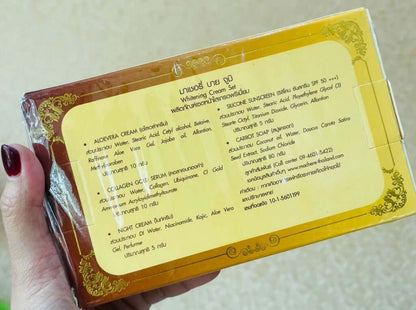 มาเชอรี่ บาย จูมิ
Whitening Cream Set
ผลิตภัณฑ์ของหน้าใสเกรดพรีเมี่ยม
ALOEVERA CREAM (อโลเวล่าครีม)
ส่วนประกอบ Water, Stearic Acid, Cetyl alcohol, Betaine,
Raffinose Aloe Vera Gel, Jojoba oil, Allantoin,
Methylparaben
ปริมาณสุทธิ 10 กรัม
COLLAGEN GOLD SERUM (คอลลาเจนทองคำ)
ส่วนประกอบ Water, Collagen, Ubiquinone, CI Gold
Ammonium Acryloyldimethyltaurate
ปริมาณสุทธิ 10 กรัม
NIGHT CREAM (ไนท์ครีม)
ส่วนประกอบ DI Water, Niacinamide, Kojic, Aloe Vera
Gel, Perfume
ปริมาณสุทธิ 5 กรัม
SILICONE SUNSCREEN (ซิลิโคน ซันสกรีน SPF 50 +++)
ส่วนประกอบ Water, Stearic Acid, Glycol (3)
Stearate Cetyl, Titanium Dioxide, Glycerin, Allantion
ปริมาณสุทธิ 5 กรัม
CARROT SOAP (สบู่แครอท)
ส่วนประกอบ Coconut oil, Water, Daucus Carota Sativa
Seed Extract, Sodium Chloride
ปริมาณสุทธิ 80 กรัม
(Call center 09-4401-5421)
เลขที่จดแจ้ง 10-1-5601199